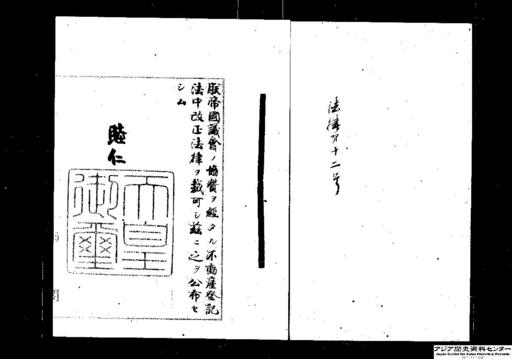 法律第十二号
朕帝國議會ノ協賛ヲ經タル不動産登記
法中改正法律ヲ裁可シ茲ニ之ヲ公布セ
シム
睦仁
天皇
御璽
アジア歴史資料センター
Japan Center for Asian Historical Records